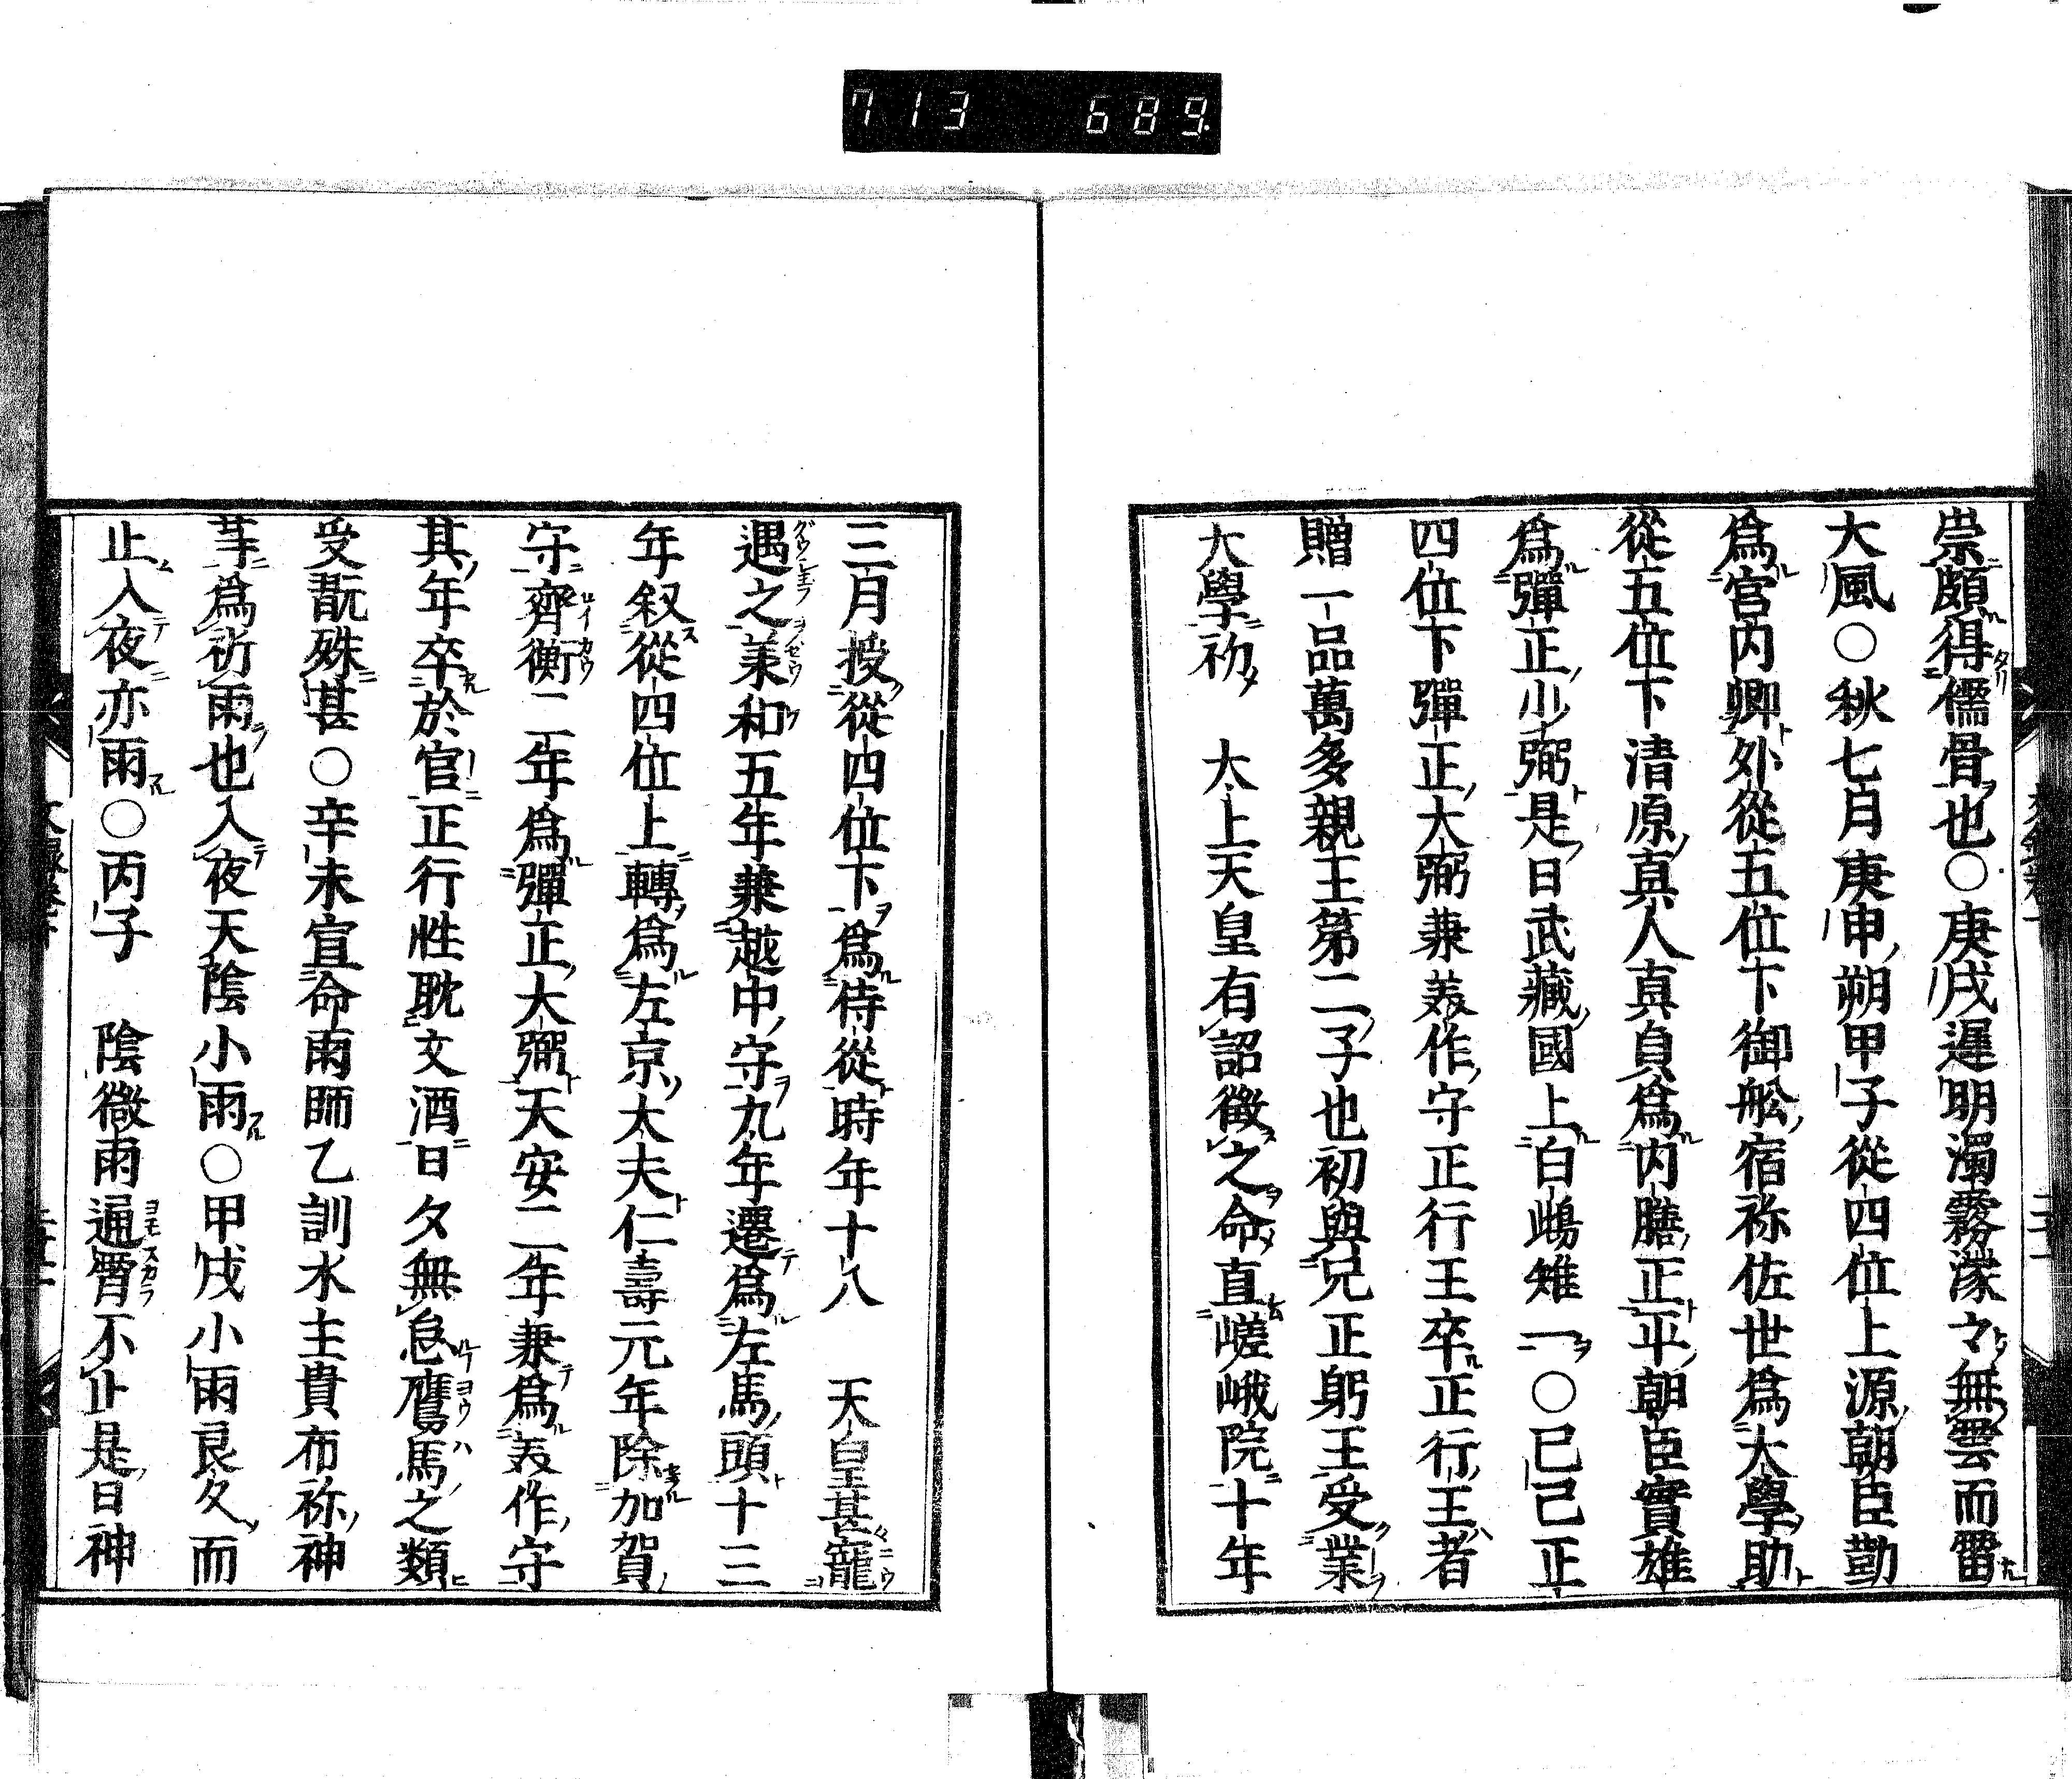 713 689
崇頗得儒骨也○庚戌遲明濁霧濛々無雲而雷
大風○秋七月庚申朔甲子從四位上源朝臣勤
爲宮内卿外從五位下御舩宿祢佐世爲大學助
從五位下清原真人真貞爲内膳正平朝臣實雄
爲彈正少弼是日武藏國上白鵶雉一○已己正
四位下彈正大弼兼美作守正行王卒正行王者
贈一品萬多親王第二子也初與兄正躬王受業
大學初　太上天皇有詔徵之命直嵯峨院十年
三月授從四位下爲侍從時年十八　天皇甚寵
遇之美和五年兼越中守九年遷爲左馬頭十三
年叙從四位上轉爲左京大夫仁壽元年除加賀
守齊衡二年爲彈正大弼天安二年兼爲美作守
其年卒於官正行性耽文酒日夕無怠鷹馬之類
受翫殊甚○辛未宣命雨師乙訓水主貴布祢神
等爲祈雨也入夜天陰小雨○甲戌小雨良久而
止入夜亦雨○丙子　陰微雨通霄不止是日神